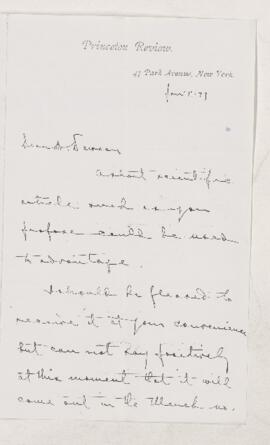 Princeton Review.
47 Park Avenue, New York.
Jan 8. 79
Dear Dr Dawson
A short scientific
article such as you
propose could be used
to advantage.
I should be pleased to
receive it at your convenience
but can not say positively
at this moment that it will
come out in the March no.